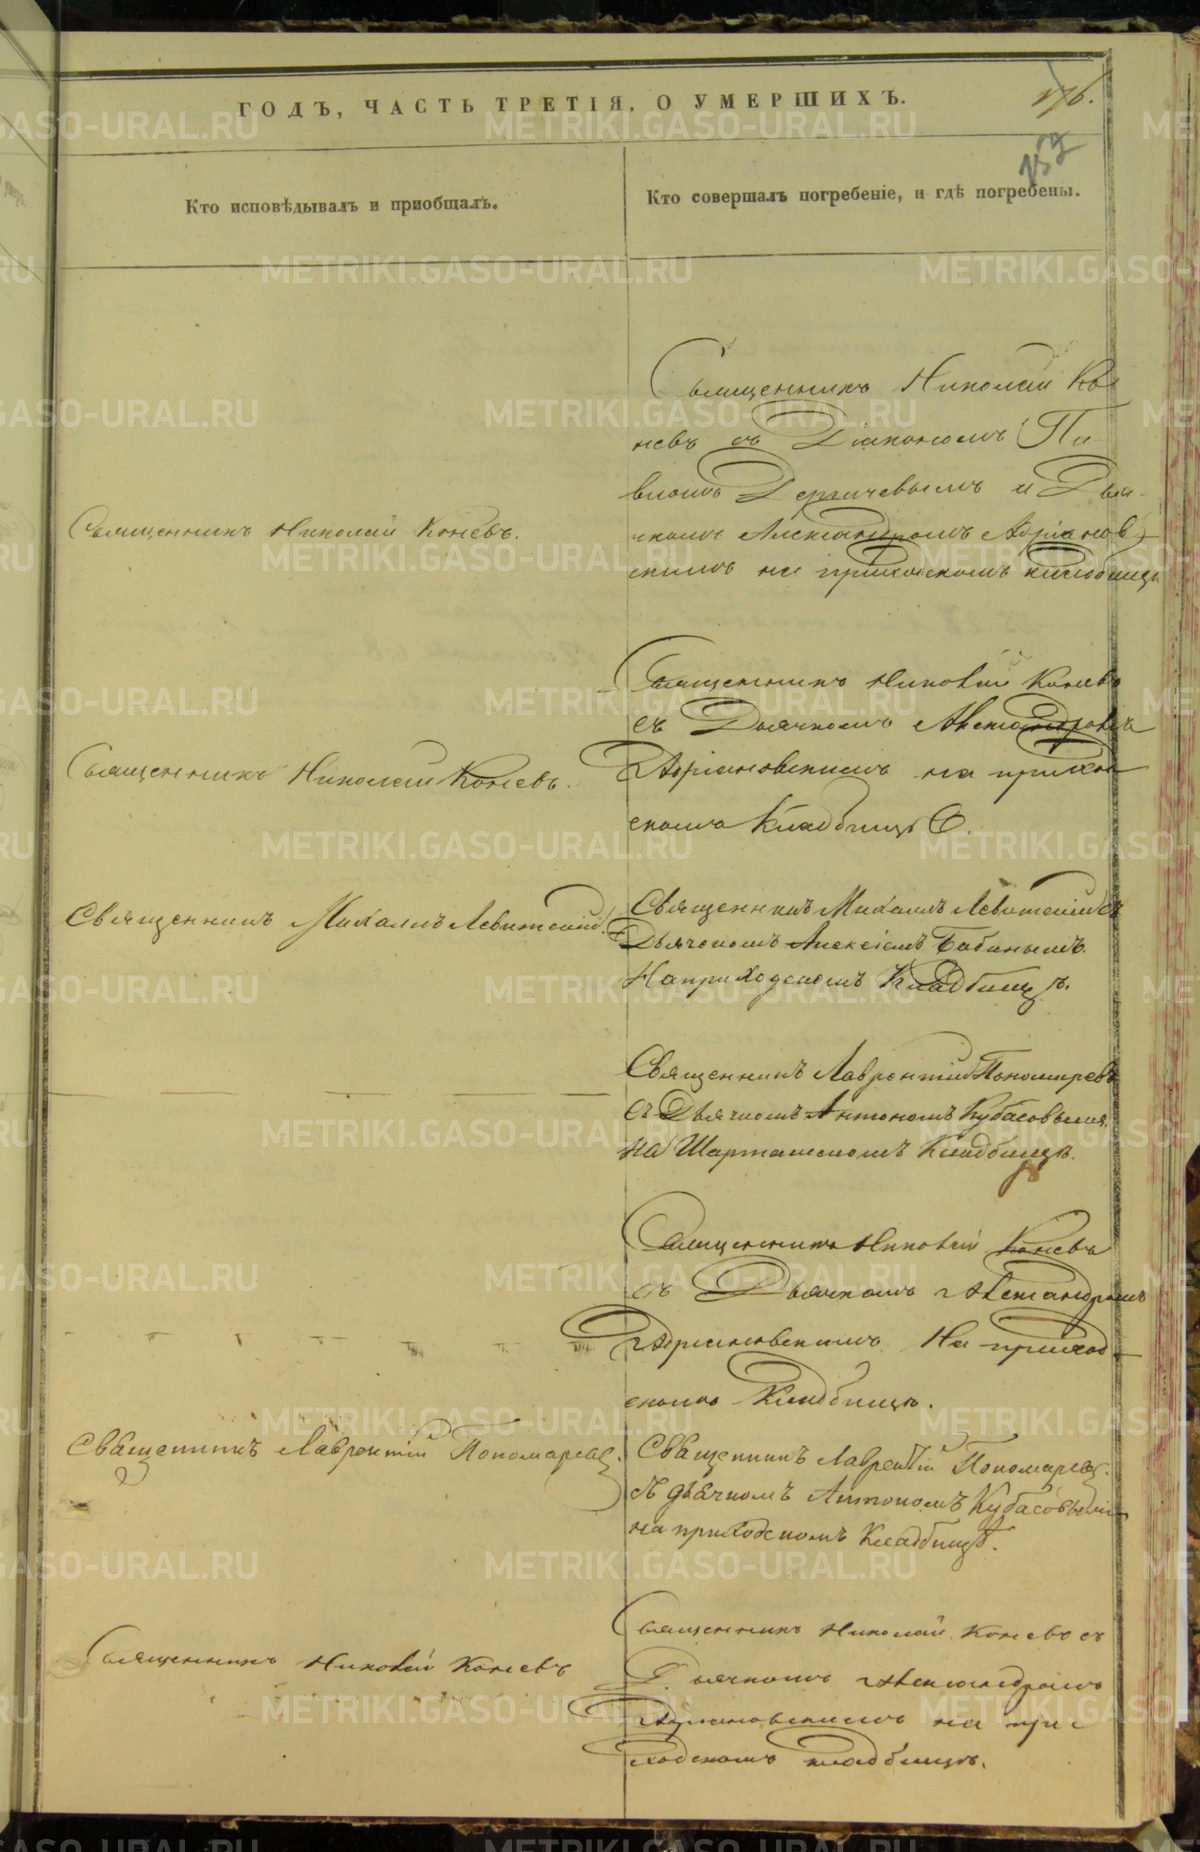 ГОДЪ, ЧАСТЬ ТРЕТІЯ, О УМЕРШИХЪ.
176.
157
Кто исповѣдывалъ и пріобщалъ.
Кто совершалъ погребеніе, и гдѣ погребены.
Священникъ Николай Ко
невъ съ Діакономъ Па
вломъ Дергачевымъ и Дья
Священникъ Николай Коневъ.
чкомъ Александромъ Адріанов
скимъ на приходскомъ кладбищѣ
Священникъ Николай Коневъ
съ Дьячкомъ Александромъ
Священникъ Николай Коневъ.
Адріановскимъ на приход
скомъ Кладбищѣ.
Священникъ Михаилъ Левитскій.
Священникъ Михаилъ Левитскій съ
Дьячкомъ Алексіемъ Бабинымъ.
На приходскомъ Кладбищѣ.
Священникъ Лаврентій Пономаревъ
съ Дьячкомъ Антономъ Кубасовымъ
на Шарташскомъ Кладбищѣ.
Священникъ Николай Коневъ
съ Дьячкомъ Александромъ
Адріановскимъ На приход
скомъ Кладбищѣ.
Священникъ Лаврентій Пономаревъ.
Священникъ Лаврентій Пономаревъ.
съ дьячкомъ Антономъ Кубасовымъ
на приходскомъ Кладбищѣ.
Священникъ Николай Коневъ съ
Священникъ Николай Коневъ
Дьячкомъ Александромъ
Адріановскимъ на при
ходскомъ кладбищѣ.
METRIKI.GASO-URAL.RU